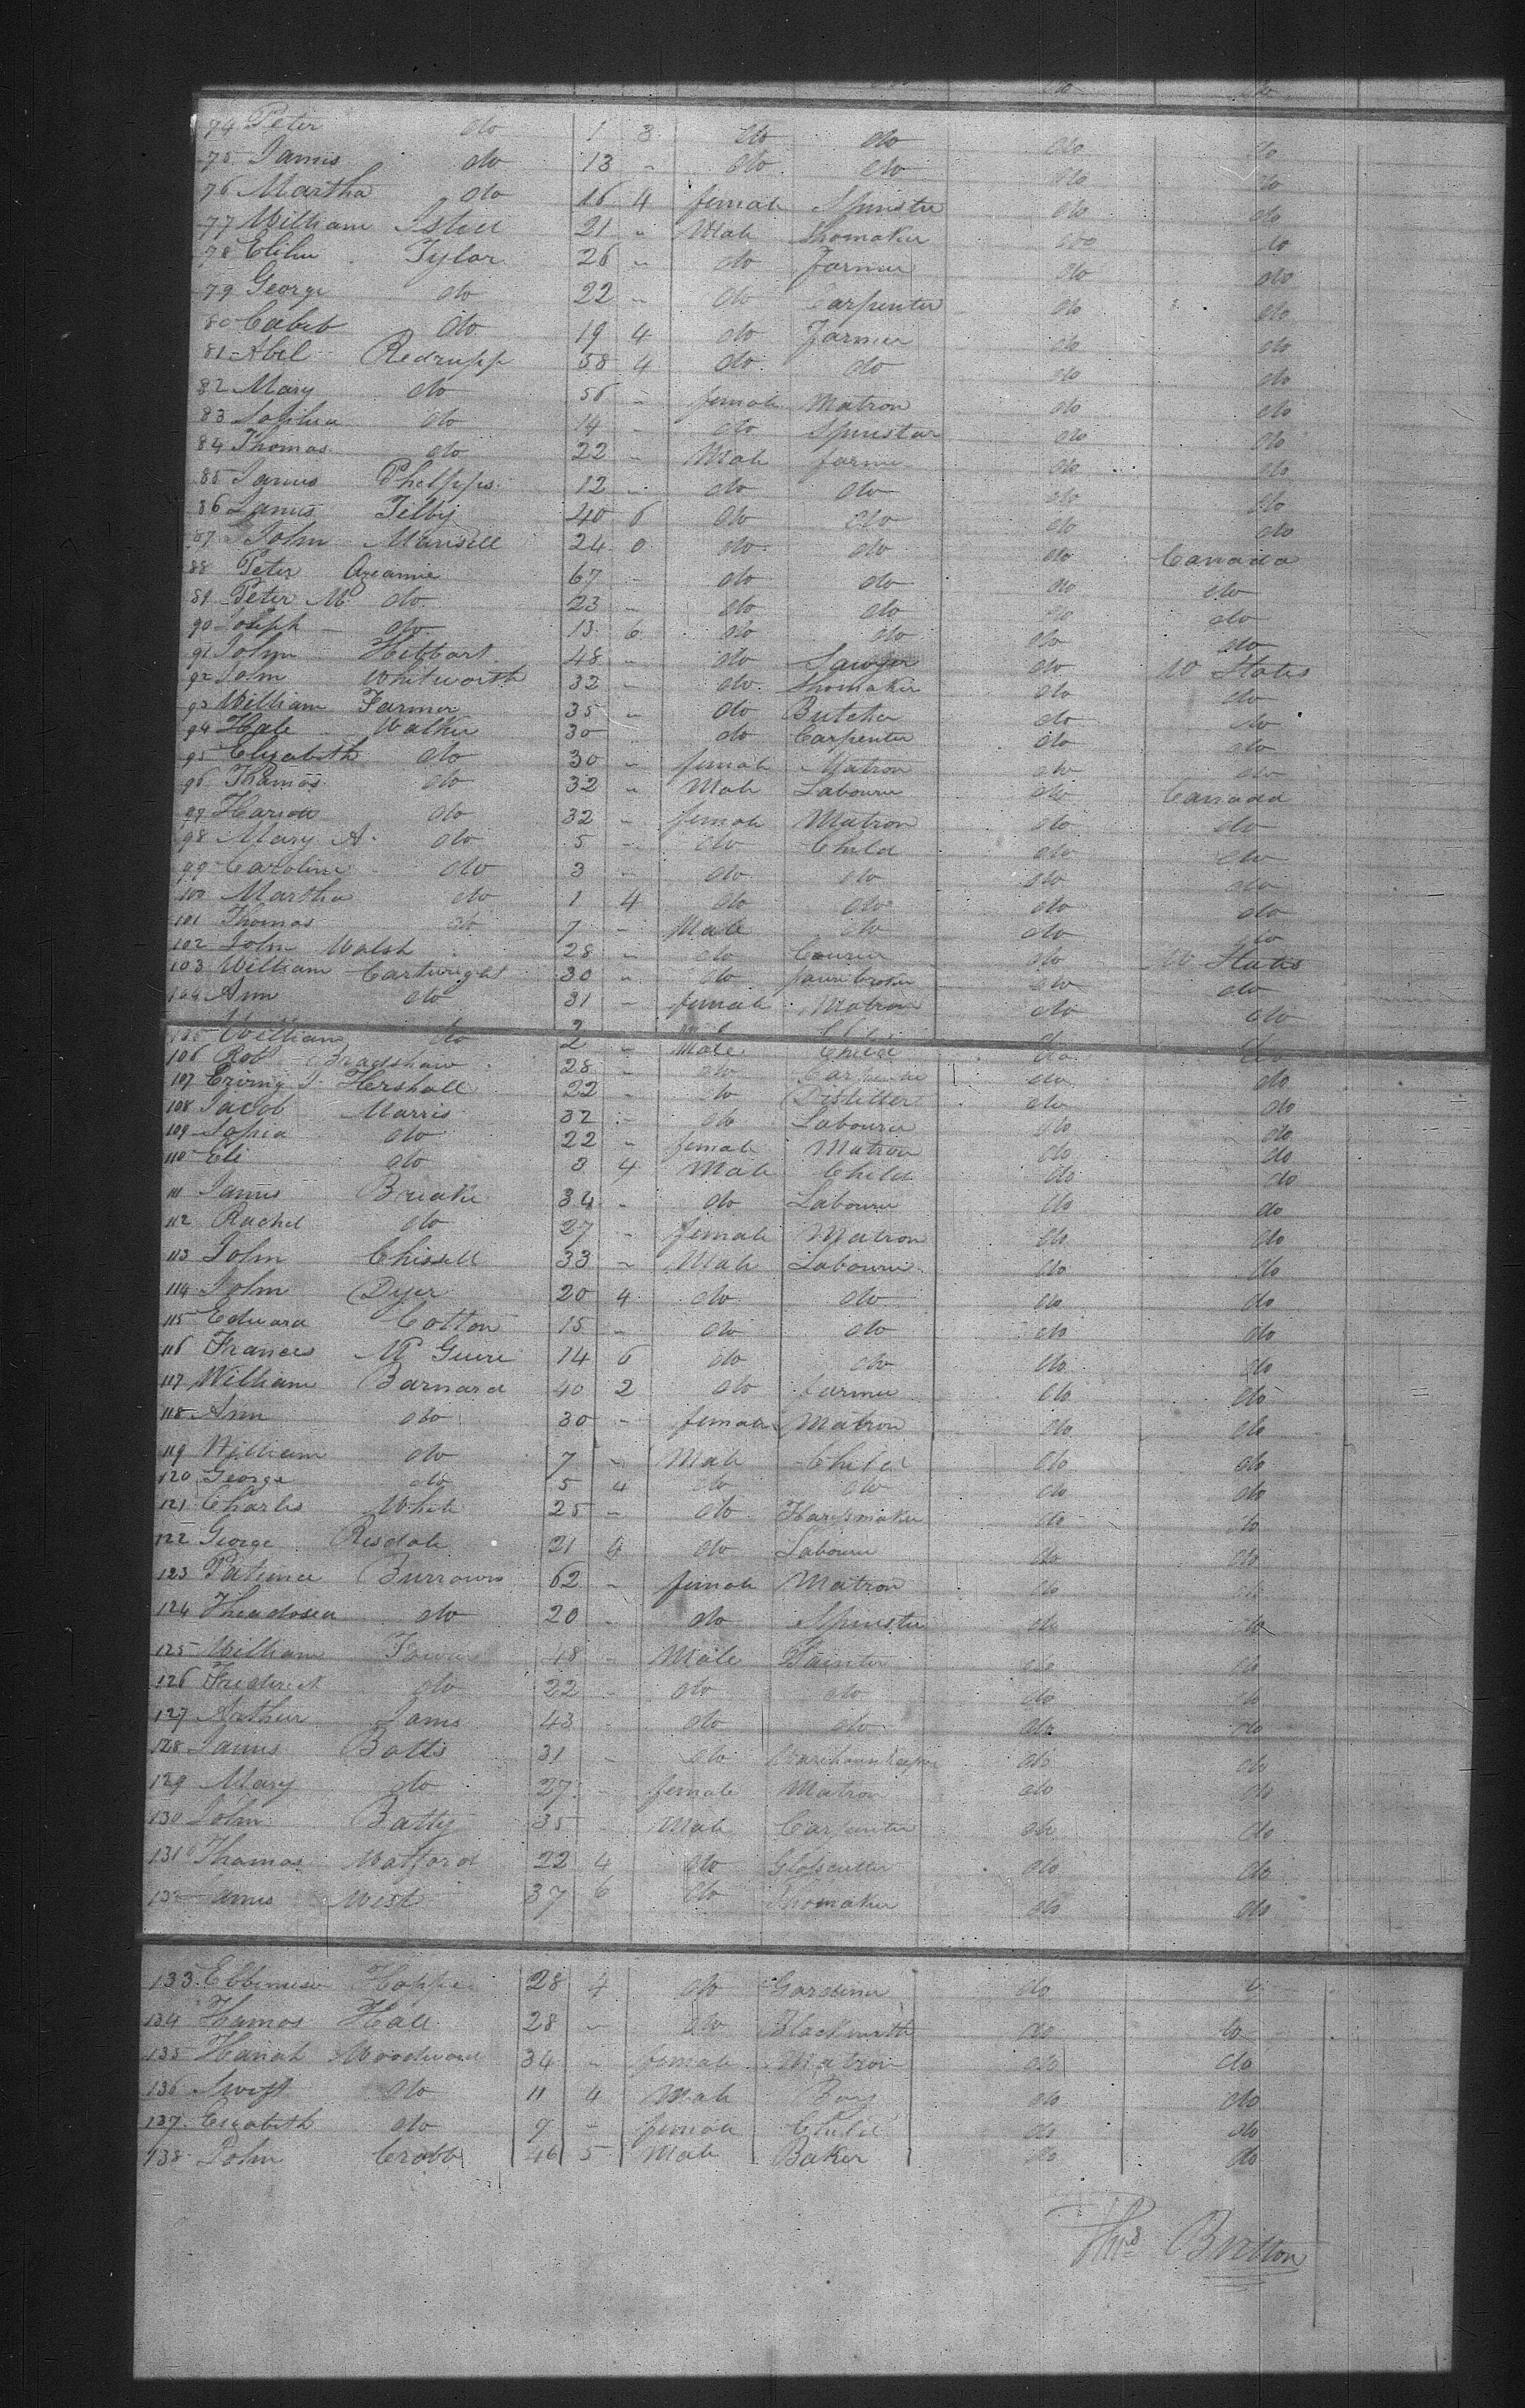 do do
74 Peter do 1 8 do do do do
75 James do 13 - do do do do
76 Martha do 16 4 female Spinster do do
77 William 21 " Male Shomaker do do
78 Elihu Tylor 26 " do Farmer do do
79 George do 22 - do Carpenter do do
80 Cabeb do 19 4 do Farmer do do
81 Abel Redrupp 58 4 do do do do
82 Mary do 56 - female Matron do do
83 Sophia do 14 - do Spinster do do
84 Thomas do 22 - Male farmer do do
85 James Phelpps 12 - do do do do
86 James Tilby 40 6 do do do do
87 John Mansell 24 0 do do do Canada
88 Peter 67 - do do do do
89 Peter Mc do 23 - do do do do
90 Joseph - do 13 6 do do do do
91 John Hibbart 48 - do Sawyer do U States
92 John Whitworth 32 - do Shomaker do do
93 William Farmer 35 " do Butcher do do
94 Hale Walker 30 do Carpenter do do
95 Elizabeth do 30 - female Matron do do
96 Thamos do 32 " Male Labourer do Canada
97 Hariott do 32 - female Matron do do
98 Mary A. do 5 - do Child do do
99 Caroline do 3 - do do do do
100 Martha do 1 4 do do do do
101 Thomas do 7 - Male do do do
102 John Walsh 28 " do Courier do U States
103 William Cartwright 30 " do do do
104 Ann do 31 - female Matron do do
105 William do 2 - Male Child do do
106 Robt Bradshaw 28 - do Carpenter do do
107 Hershall 22 - do Distiller do do
108 Jacob Marris 32 - do Labourer do do
109 Sopia do 22 - female Matron do do
110 Eli do 3 4 Male Child do do
111 James Breake 34 - do Labourer do do
112 Rachel do 27 - female Matron do do
113 John Chissell 33 - Male Labourer do do
114 John Dyer 20 4 do do do do
115 Edward Cotton 15 - do do do do
116 Frances Mc Guire 14 6 do do do do
117 William Barnard 40 2 do farmer do do
118 Ann do 30 - female Matron do do
119 William do 7 - Male Child do do
120 George do 5 4 do do do do
121 Charles White 25 - do Harpmaker do do
122 George Risdale 21 4 do Labourer do do
123 Patience Burrows 62 - female Matron do do
124 Theadosea do 20 - do Spinster do do
125 William 18 - Male Painter do do
126 Frederick do 22 - do do do do
127 Arthur James 43 - do do do do
128 James Botts 31 - do Warehousekeeper do do
129 Mary do 27 - female Matron do do
130 John Batty 35 - Male Carpenter do do
131 Thamos Watford 22 4 do Glasscutter do do
132 James West 37 6 do Shomaker do do
133 Ebbenuser Hopper 28 4 do Gardener do
134 Thamos Hall 28 - do Blacksmith do do
135 Hanah Woodward 34 - female Matron do do
136 Swift do 11 4 Male Boy do do
137 Elizabeth do 9 - female Child do do
138 John Crabb 46 5 Male Baker do do
Thos Britton